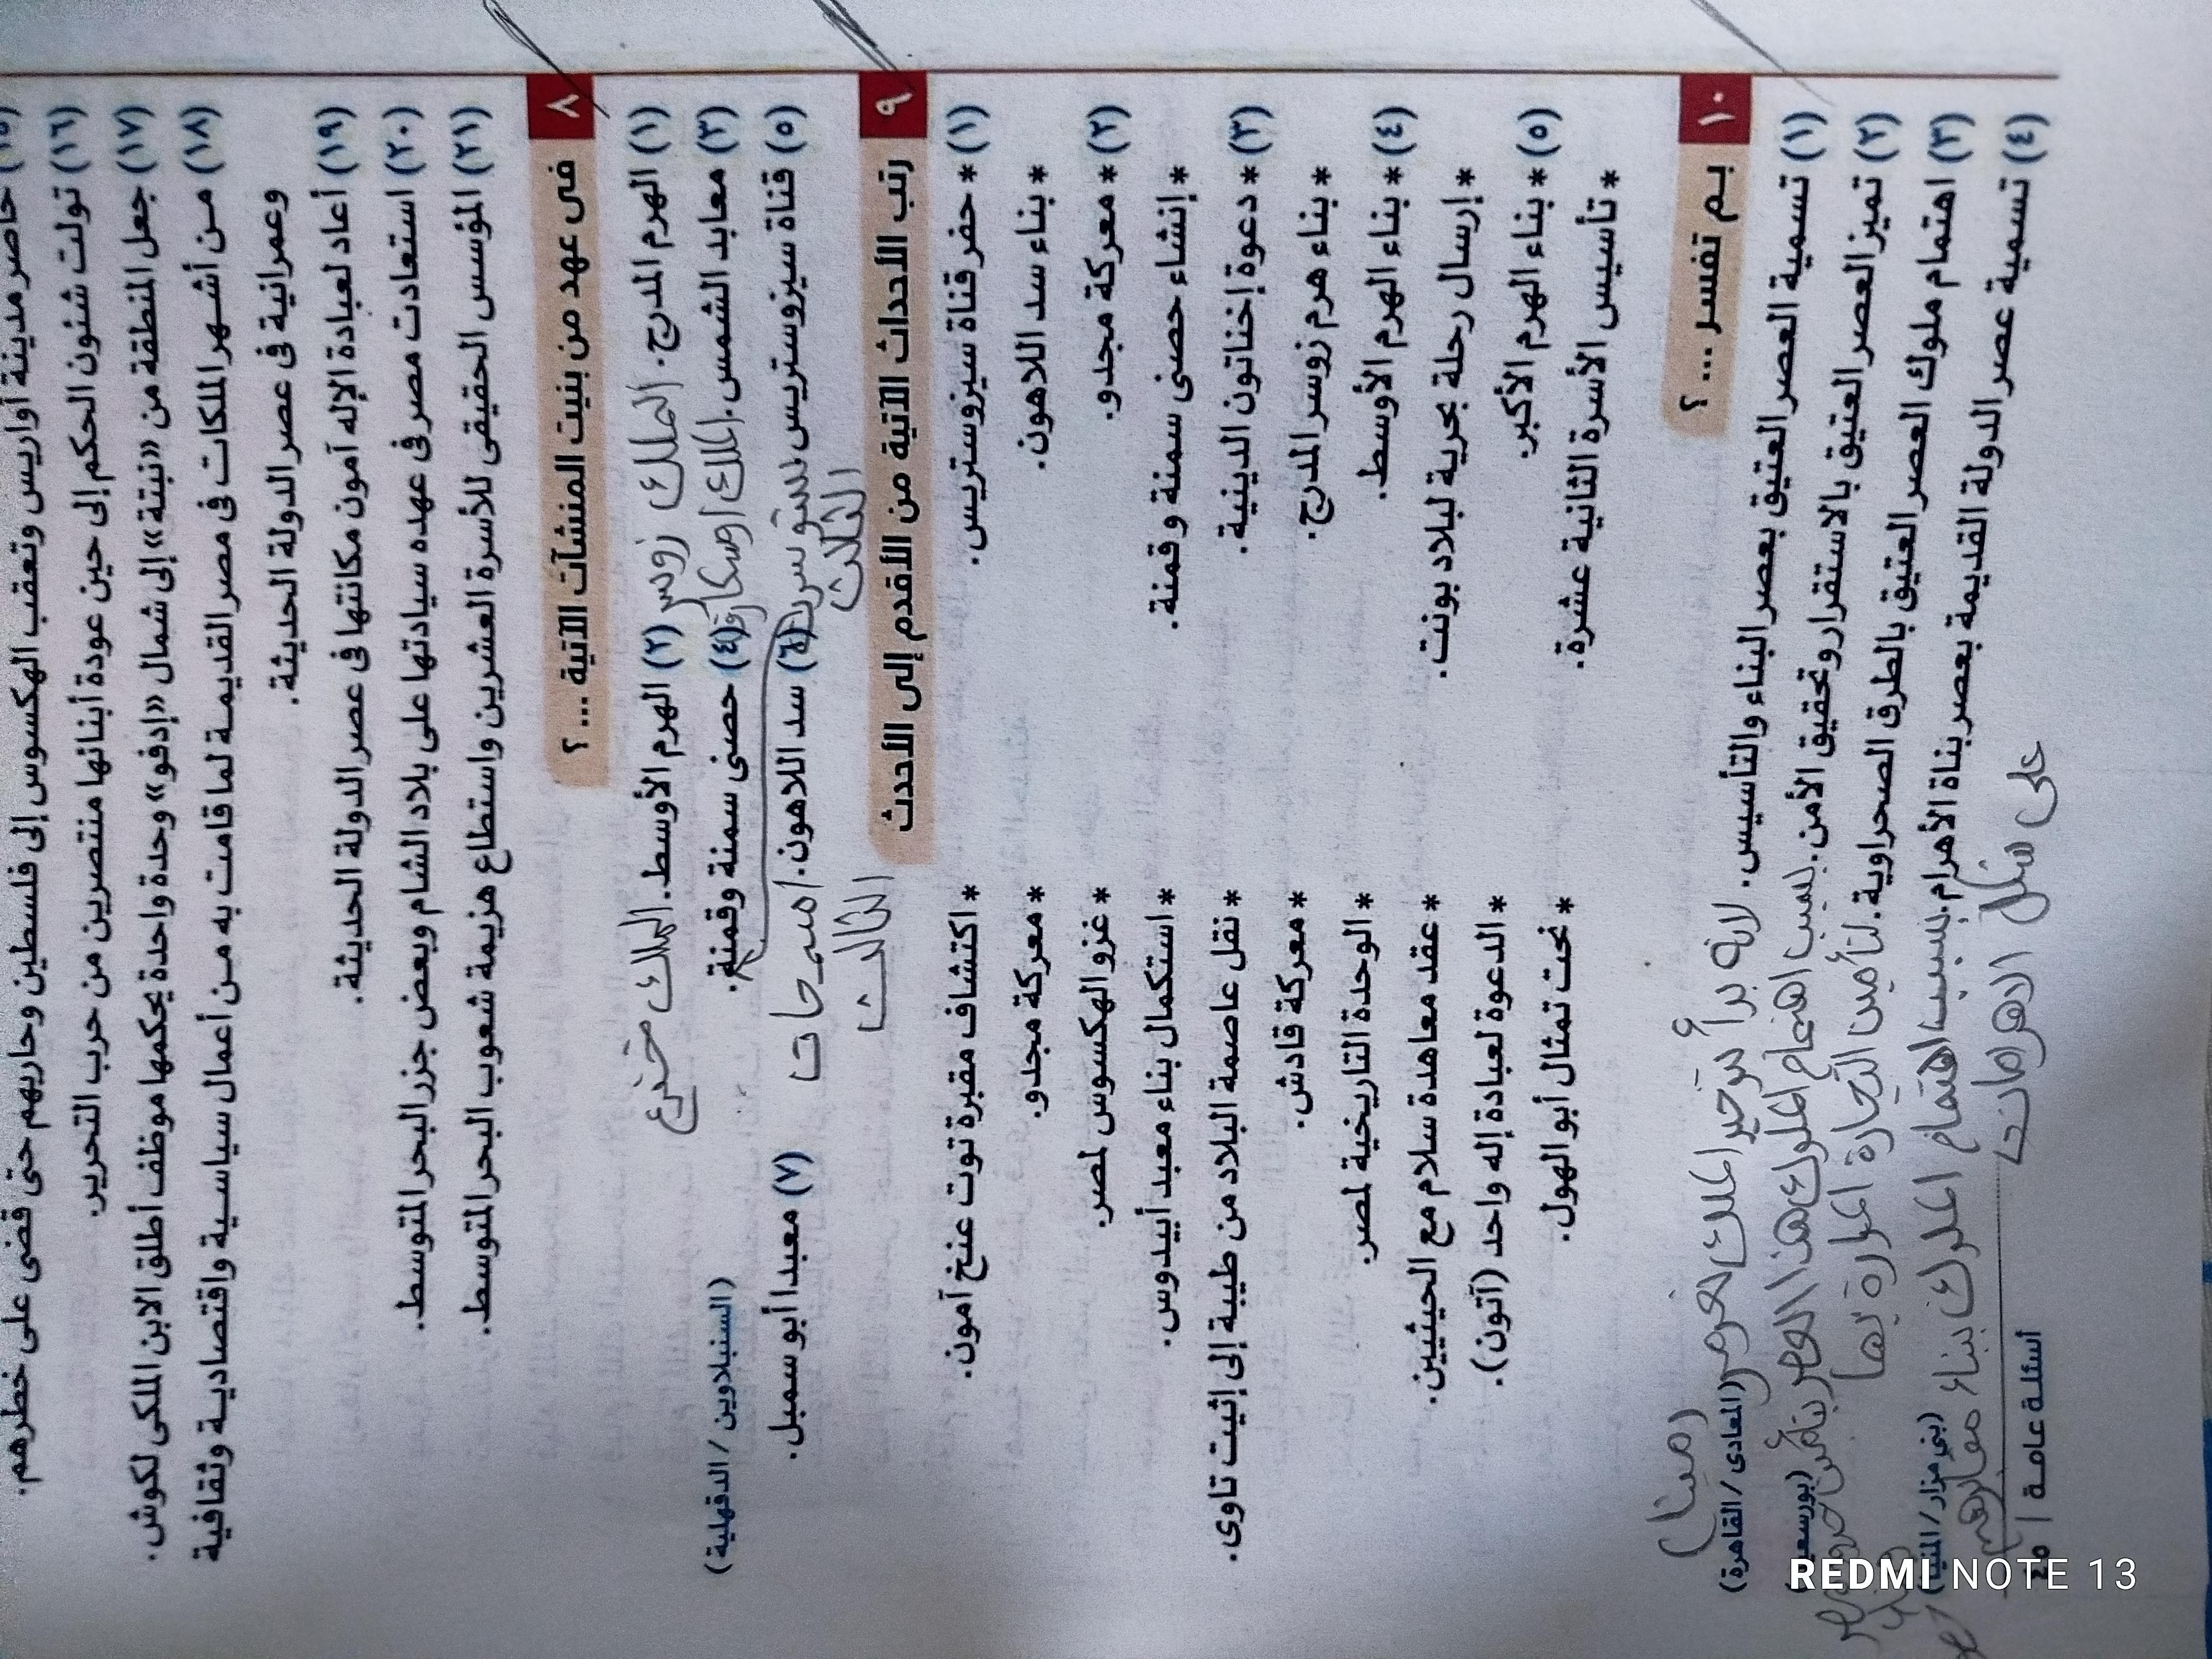 (١٥) حاصر مدينة أواريس وتعقب الهكسوس إلى فلسطين وحاربهم حتى قضى على خطرهم.
(١٦) تولت شئون الحكم إلى حين عودة أبنائها منتصرين من حرب التحرير.
(١٧) جعل المنطقة من «نبتة» إلى شمال «إدفو» وحدة واحدة يحكمها موظف أطلق الابن الملكى لكوش.
(١٨) من أشهر الملكات فى مصر القديمة لما قامت به من أعمال سياسية واقتصادية وثقافية
وعمرانية فى عصر الدولة الحديثة.
(١٩) أعاد لعبادة الإله آمون مكانتها فى عصر الدولة الحديثة.
(٢٠) استعادت مصر فى عهده سيادتها على بلاد الشام وبعض جزر البحر المتوسط.
(٢١) المؤسس الحقيقى للأسرة العشرين واستطاع هزيمة شعوب البحر المتوسط.
٨ فى عهد من بنيت المنشآت الآتية ... ؟
(١) الهرم المدرج. الملك زوسر (٢) الهرم الأوسط. الملك خفرع
(٣) معابد الشمس. الملك اوسركاف (٤) حصنى سمنة وقمنة. (السنبلاوين / الدقهلية)
(٥) قناة سيزوستريس سنوسرت (٦) سد اللاهون. امنمحات (٧) معبدا أبو سمبل.
الثالث الثالث
٩ رتب الأحداث الآتية من الأقدم إلى الأحدث
(١) * حفر قناة سيزوستريس. * اكتشاف مقبرة توت عنخ آمون.
* بناء سد اللاهون. * معركة مجدو.
(٢) * معركة مجدو. * غزو الهكسوس لمصر.
* إنشاء حصنى سمنة وقمنة. * استكمال بناء معبد أبيدوس.
(٣) * دعوة إخناتون الدينية. * نقل عاصمة البلاد من طيبة إلى إثيت تاوى.
* بناء هرم زوسر المدرج. * معركة قادش.
(٤) * بناء الهرم الأوسط. * الوحدة التاريخية لمصر.
* إرسال رحلة بحرية لبلاد بونت. * عقد معاهدة سلام مع الحيثيين.
(٥) * بناء الهرم الأكبر. * الدعوة لعبادة إله واحد (آتون).
* تأسيس الأسرة الثانية عشرة. * نحت تمثال أبو الهول.
١٠ بم تفسر ... ؟
(مينا)
(١) تسمية العصر العتيق بعصر البناء والتأسيس. لانه بدأ الملك (المعادى / القاهرة)
(٢) تميز العصر العتيق بالاستقرار وتحقيق الأمن. بسبب اهتمام الملوك هذا العصر بتأمين حدود (بورسعيد)
(٣) اهتمام ملوك العصر العتيق بالطرق الصحراوية. لتأمين التجارة المارة بها
(٤) تسمية عصر الدولة القديمة بعصر بناة الأهرام. بسبب اهتمام الملوك بناء مقابرهم (بنى مزار / المنيا)
على شكل الاهرامات
أسئلة عامة |
REDMI NOTE 13